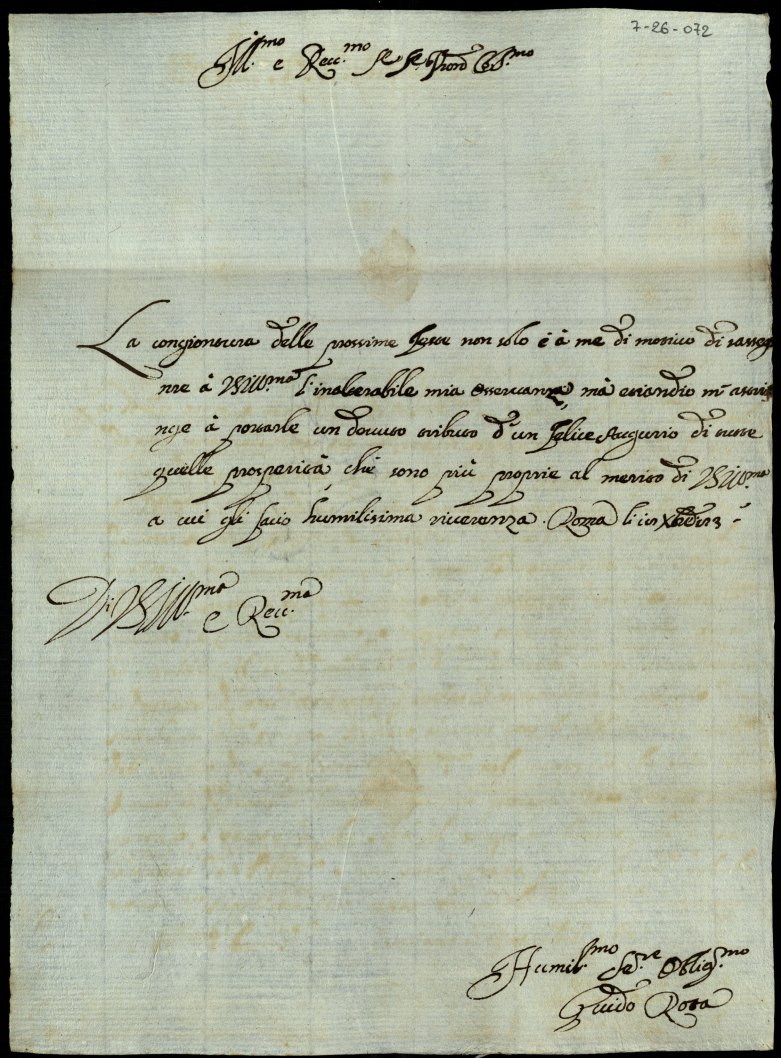 7-26-072
Ill.mo e Rev.mo Sr Sr Pron Col.mo
La congiontura delle prossime feste non solo è à me di motivo di rasseg
nre à VSIll.ma l'inalterabile mia osservanza, mà etiandio m'astri
nge à portarle un dovuto tributo d'un felice Augurio di tutte
quelle prosperità, che sono più proprie al merito di VSIll.ma
a cui gli facio humilisima riveranza. Roma li
Di VSIll.ma e Rev.ma
Humil.mo Se.re Oblig.mo
Guido Rota